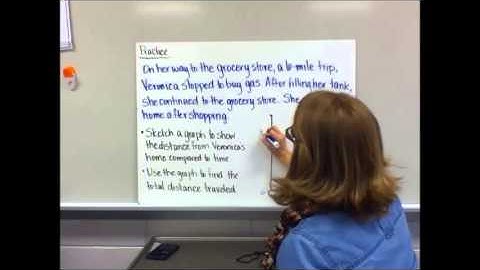 Practice
On her way to the grocery store, a 10-mile trip,
Veronica stopped to buy gas. After filling her tank,
she continued to the grocery store. She
home after shopping.
• Sketch a graph to show
the distance from Veronica's
home compared to time
• Use the graph to find the
total distance traveled